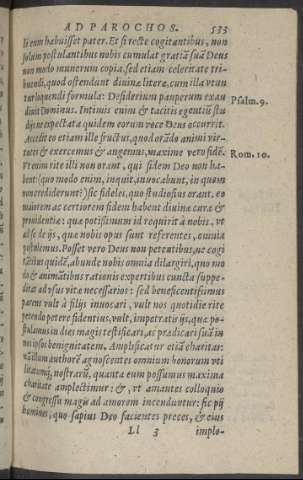 AD PAROCHOS. 533
li eum habuisset pater. Et si recte cogitantibus, non
solum postulantibus nobis cumulat gratiā suā Deus
non modo munerum copia, sed etiam celeritate tri-
buendi, quod ostendunt diuinæ literæ, cum illa vtun
tur loquendi formula: Desiderium pauperum exau
diuit Dominus. Intimis enim & tacitis egentiū stu
dijs ne expectata quidem eorum voce Deus occurrit.
Psalm. 9.
Accedit eo etiam ille fructus, quod orādo animi vir-
tutes & exercemus & augemus, maxime vero fidē.
Vt enim rite illi non orant, qui fidem Deo non ha-
Rom. 10.
bent: (quo modo enim, inquit, inuocabunt, in quem
non crediderunt?) sic fideles, quo studiosius orant, eo
maiorem ac certiorem fidem habent diuinæ curæ &
prouidentiæ: quæ potissimum id requirit à nobis, vt
ad se de ijs, quæ nobis opus sunt referentes, omnia
postulemus. Posset vero Deus non petentibus, ac cogi
tātius quidē, abunde nobis omnia dilargiri, quo mo
do & animātibus rationis expertibus cuncta suppe-
ditat ad vsus vitæ necessarios: sed beneficentissimus
parens vult à filijs inuocari, vult nos quotidie rite
petendo petere fidentius, vult, impetratis ijs, quæ po-
stulamus in dies magis testificari, ac prædicari suā in
nos ipsius benignitatem. Amplificatur etiā charitas:
authorē agnoscentes omnium honorum vti
litatumq́, nostrarū, quanta eum possumus maxima
charitate amplectimur: &, vt amantes colloquio
& congressu magis ad amorem incenduntur: sic pij
homines, quo sæpius Deo facientes preces, & eius
Ll 3 implo-